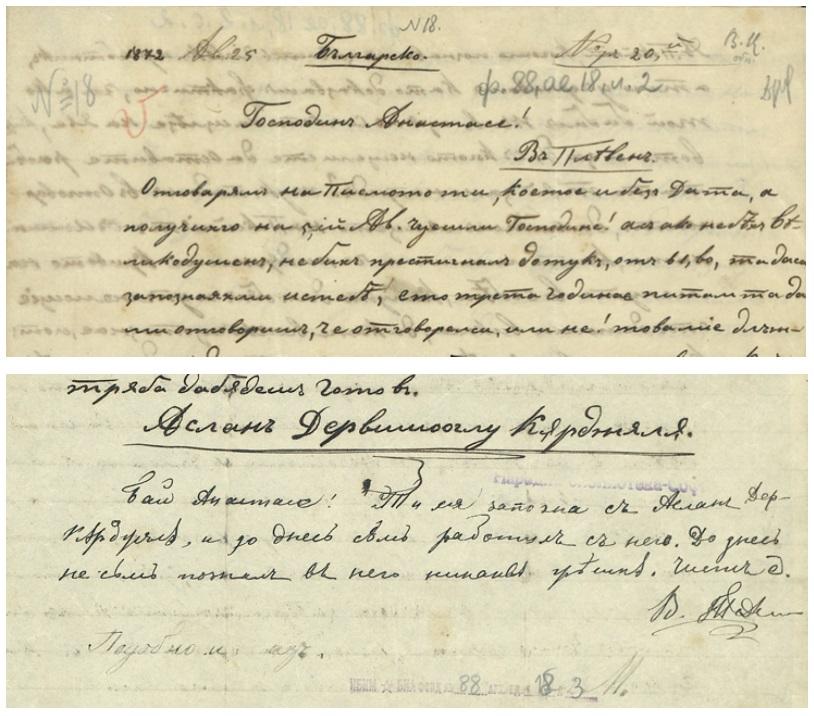 N 18.
1872 Ав. 25 Българско. No рѫ 20, й В. Ц.
N º/18 ф. 88, ае 18, л. 2
Господинъ Анастасе!
Въ Плѣвенъ.
Отговарямъ на Писмото ти, коетое и безъ Дата, а
получихго на 5,ій Ав. чуешли Господине! азъ ако небѣхъ вѣ-
ликодушенъ, небихъ престигналъ дотукъ, отъ 61, во, та даса
запознаяхми истебѣ, ето трета година е питам та да
ми отговориш, че отговоренси, или не! това мие длъж-
тряба дабѫдеш готовъ.
Асланъ Дервишооглу Кярджяля.
Бай Анастасе! Ти мя запозна съ Асланъ Дер-
Кѫрджялѫ, и до днесь съмъ работилъ съ него. До днесь
не съмъ позналъ въ него никаква грѣшка. Чистъ е.
В.
Подобно и азъ.
НБКМ - БИА ФОНД 88 18 3